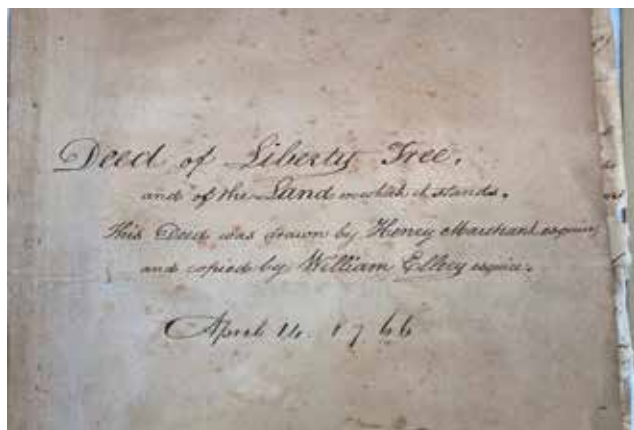 Deed of Liberty Tree.
and of the Land on which it stands.
This Deed was drawn by Henry Marchant esquire,
and copied by William Ellery esquire.
April 14. 1766